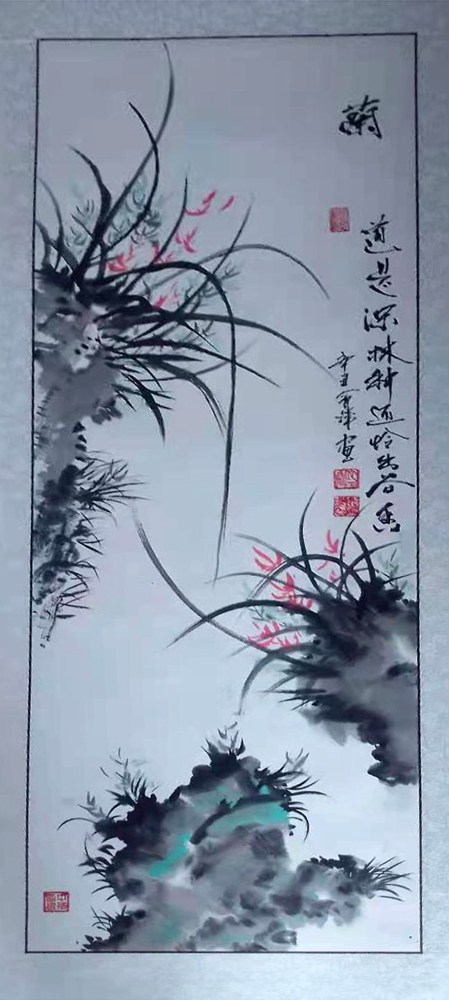 蘭
道是深林种还怜出谷香
辛丑